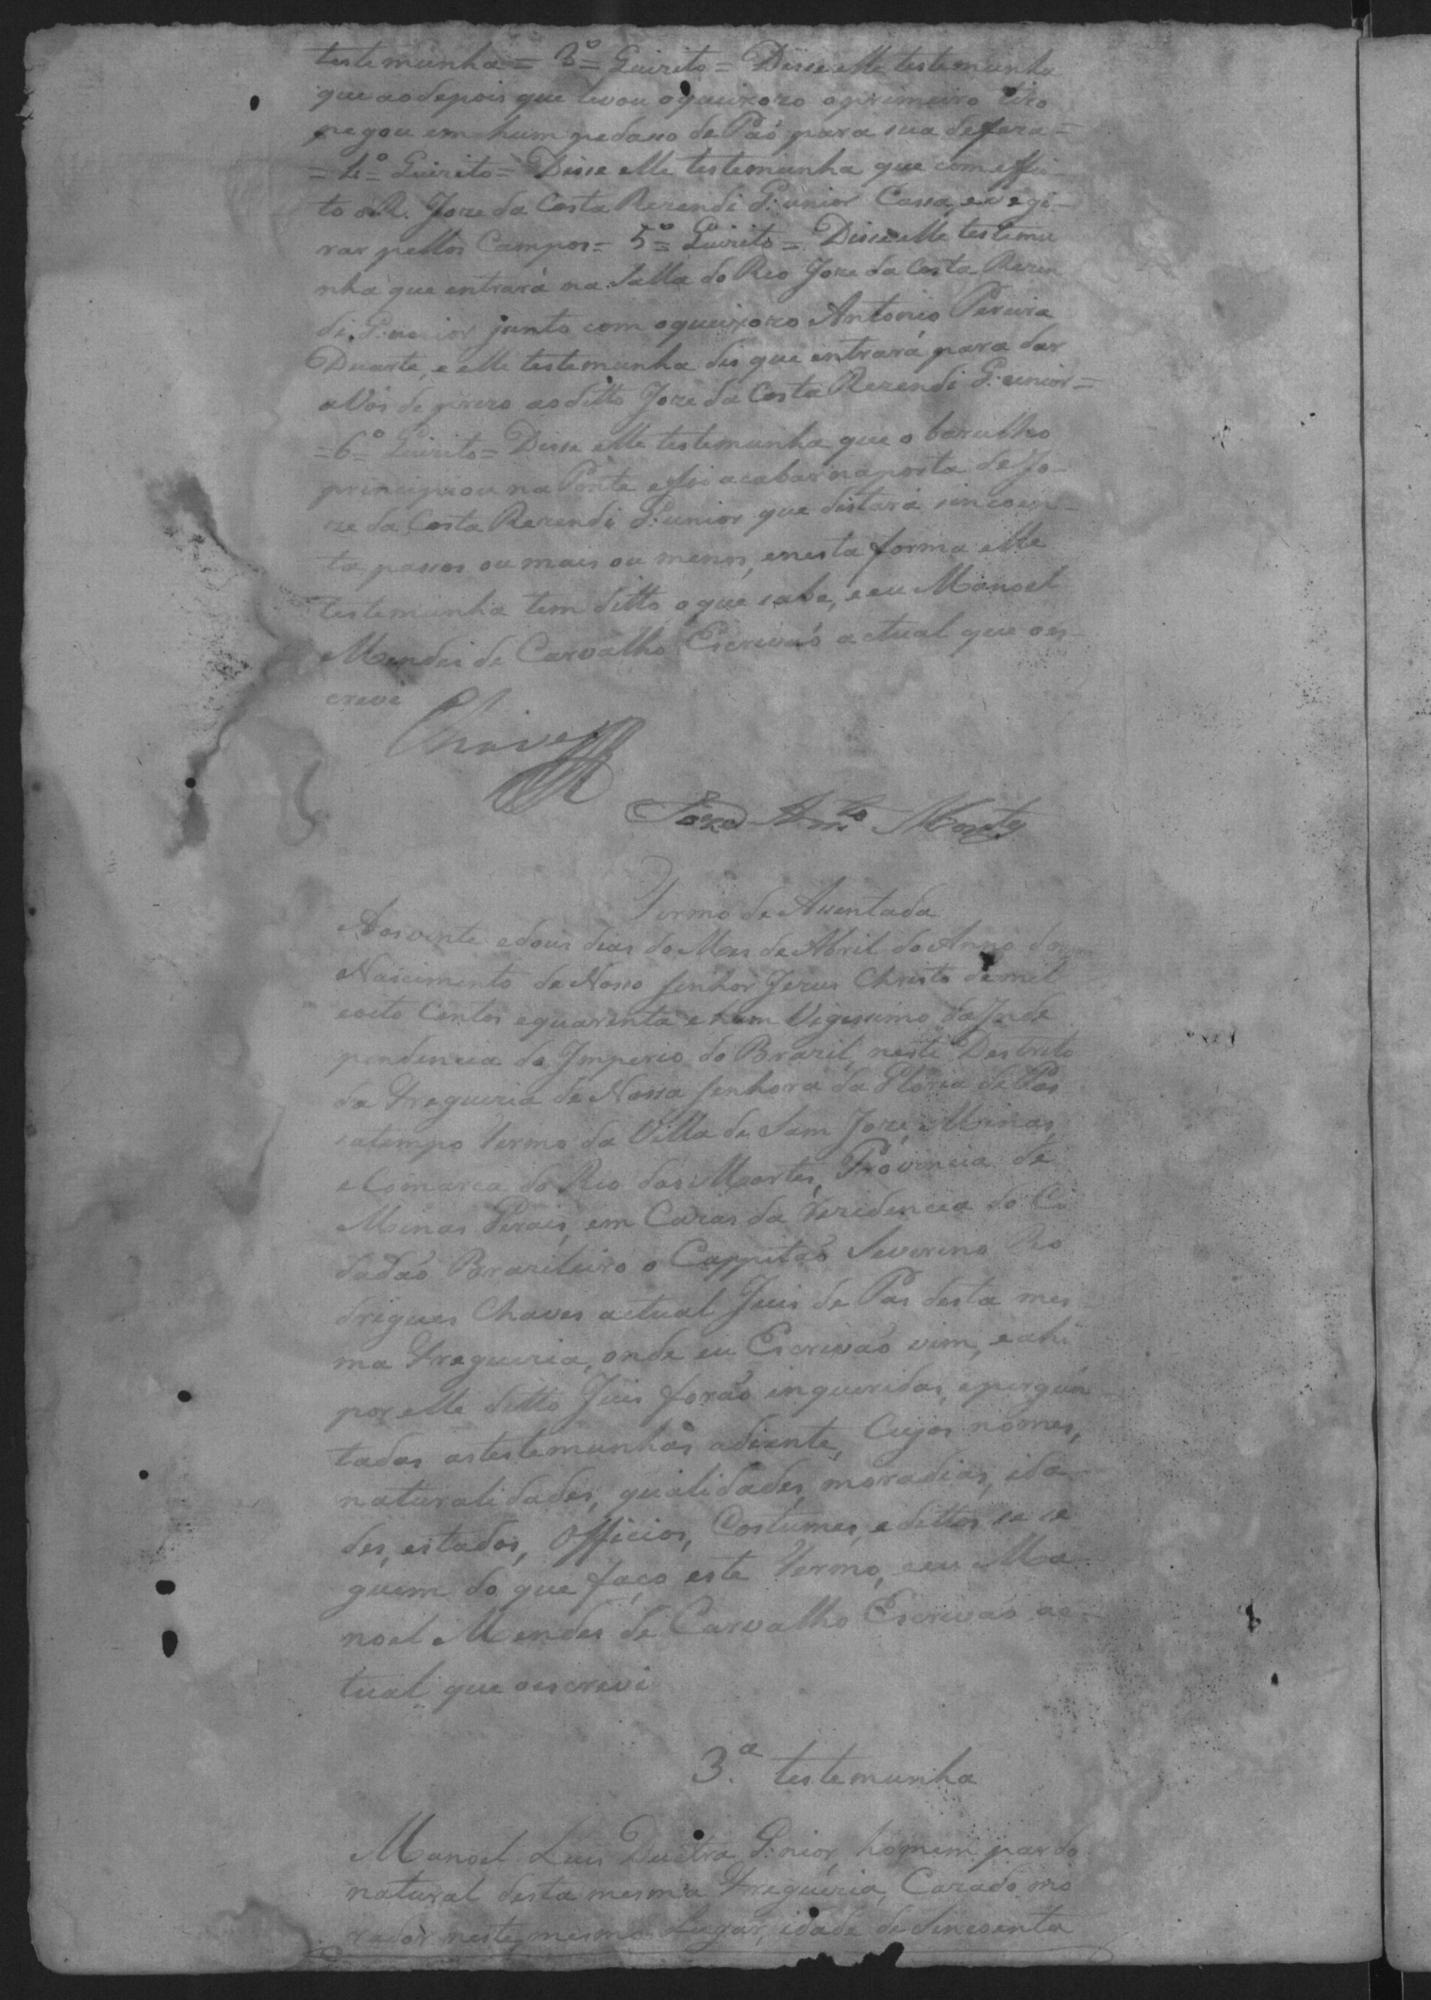 testemunha = 3º = Quizito = Disse elle testemunha
que ao depois que levou o queixozo o primeiro tiro
pegou em hum pedaso de Páo para sua defeza =
= 4º = Quizito = Disse elle testemunha que com effei-
to o R. Joze da Costa Rezendi Junior Cassa, e vegi-
rar pellos Campos = 5º = Quizito = Disse elle testemu
nha que entrará na Salla do Reo Joze da Costa Rezen
di Junior junto com o queixozo Antonio Pereira
Duarte, e elle testemunha dis que entrará para dar
a Vós de prezo ao ditto Joze da Costa Rezendi Junior =
= 6º Quizito = Disse elle testemunha que o barulho
principiou na Ponte e foi acabar na porta de Jo-
ze da Costa Rezendi Junior que distará sincoen-
ta passos ou mais ou menos, e nesta forma elle
testemunha tem ditto o que sabe, e eu Manoel
Mendes de Carvalho Escrivaõ actual que o es-
crevi
Chaves
Joze Ant.º
Termo de Assentada
Aos vinte e dous dias do Mes de Abril do Anno do
Nascimento de Nosso Senhor Jezus Christo de mil
e oito Centos e quarenta e hum Vigessimo da Inde
pendencia do Imperio do Brazil, neste Destrito
da Freguizia de Nossa Senhora da Gloria de Pas
satempo Termo da Villa de Sam Joze, Minas,
e Comarca do Rio das Mortes, Provincia de
Minas Gerais, em Cazas da Rezidencia do Ci
dadaõ Brazileiro o Cappitaõ Severino Ro
drigues Chaves actual Juis de Pas desta mes
ma Freguizia, onde eu Escrivaõ vim, e ahi
por elle ditto Juis foraõ inqueridas, e pergun
tadas as testemunhas adiante, Cujos nomes,
naturalidades, qualidades, moradias, ida-
des, estados, Officios, Costumes, e dittos se se
guem do que faço este Termo, e eu Ma
noel Mendes de Carvalho Escrivaõ ac-
tual que o escrevi
3.ª testemunha
Manoel Luis Duttra Junior, homem pardo
natural desta mesma Freguizia, Cazado, mo
rador neste mesmo Lugar, idade de Sincoenta